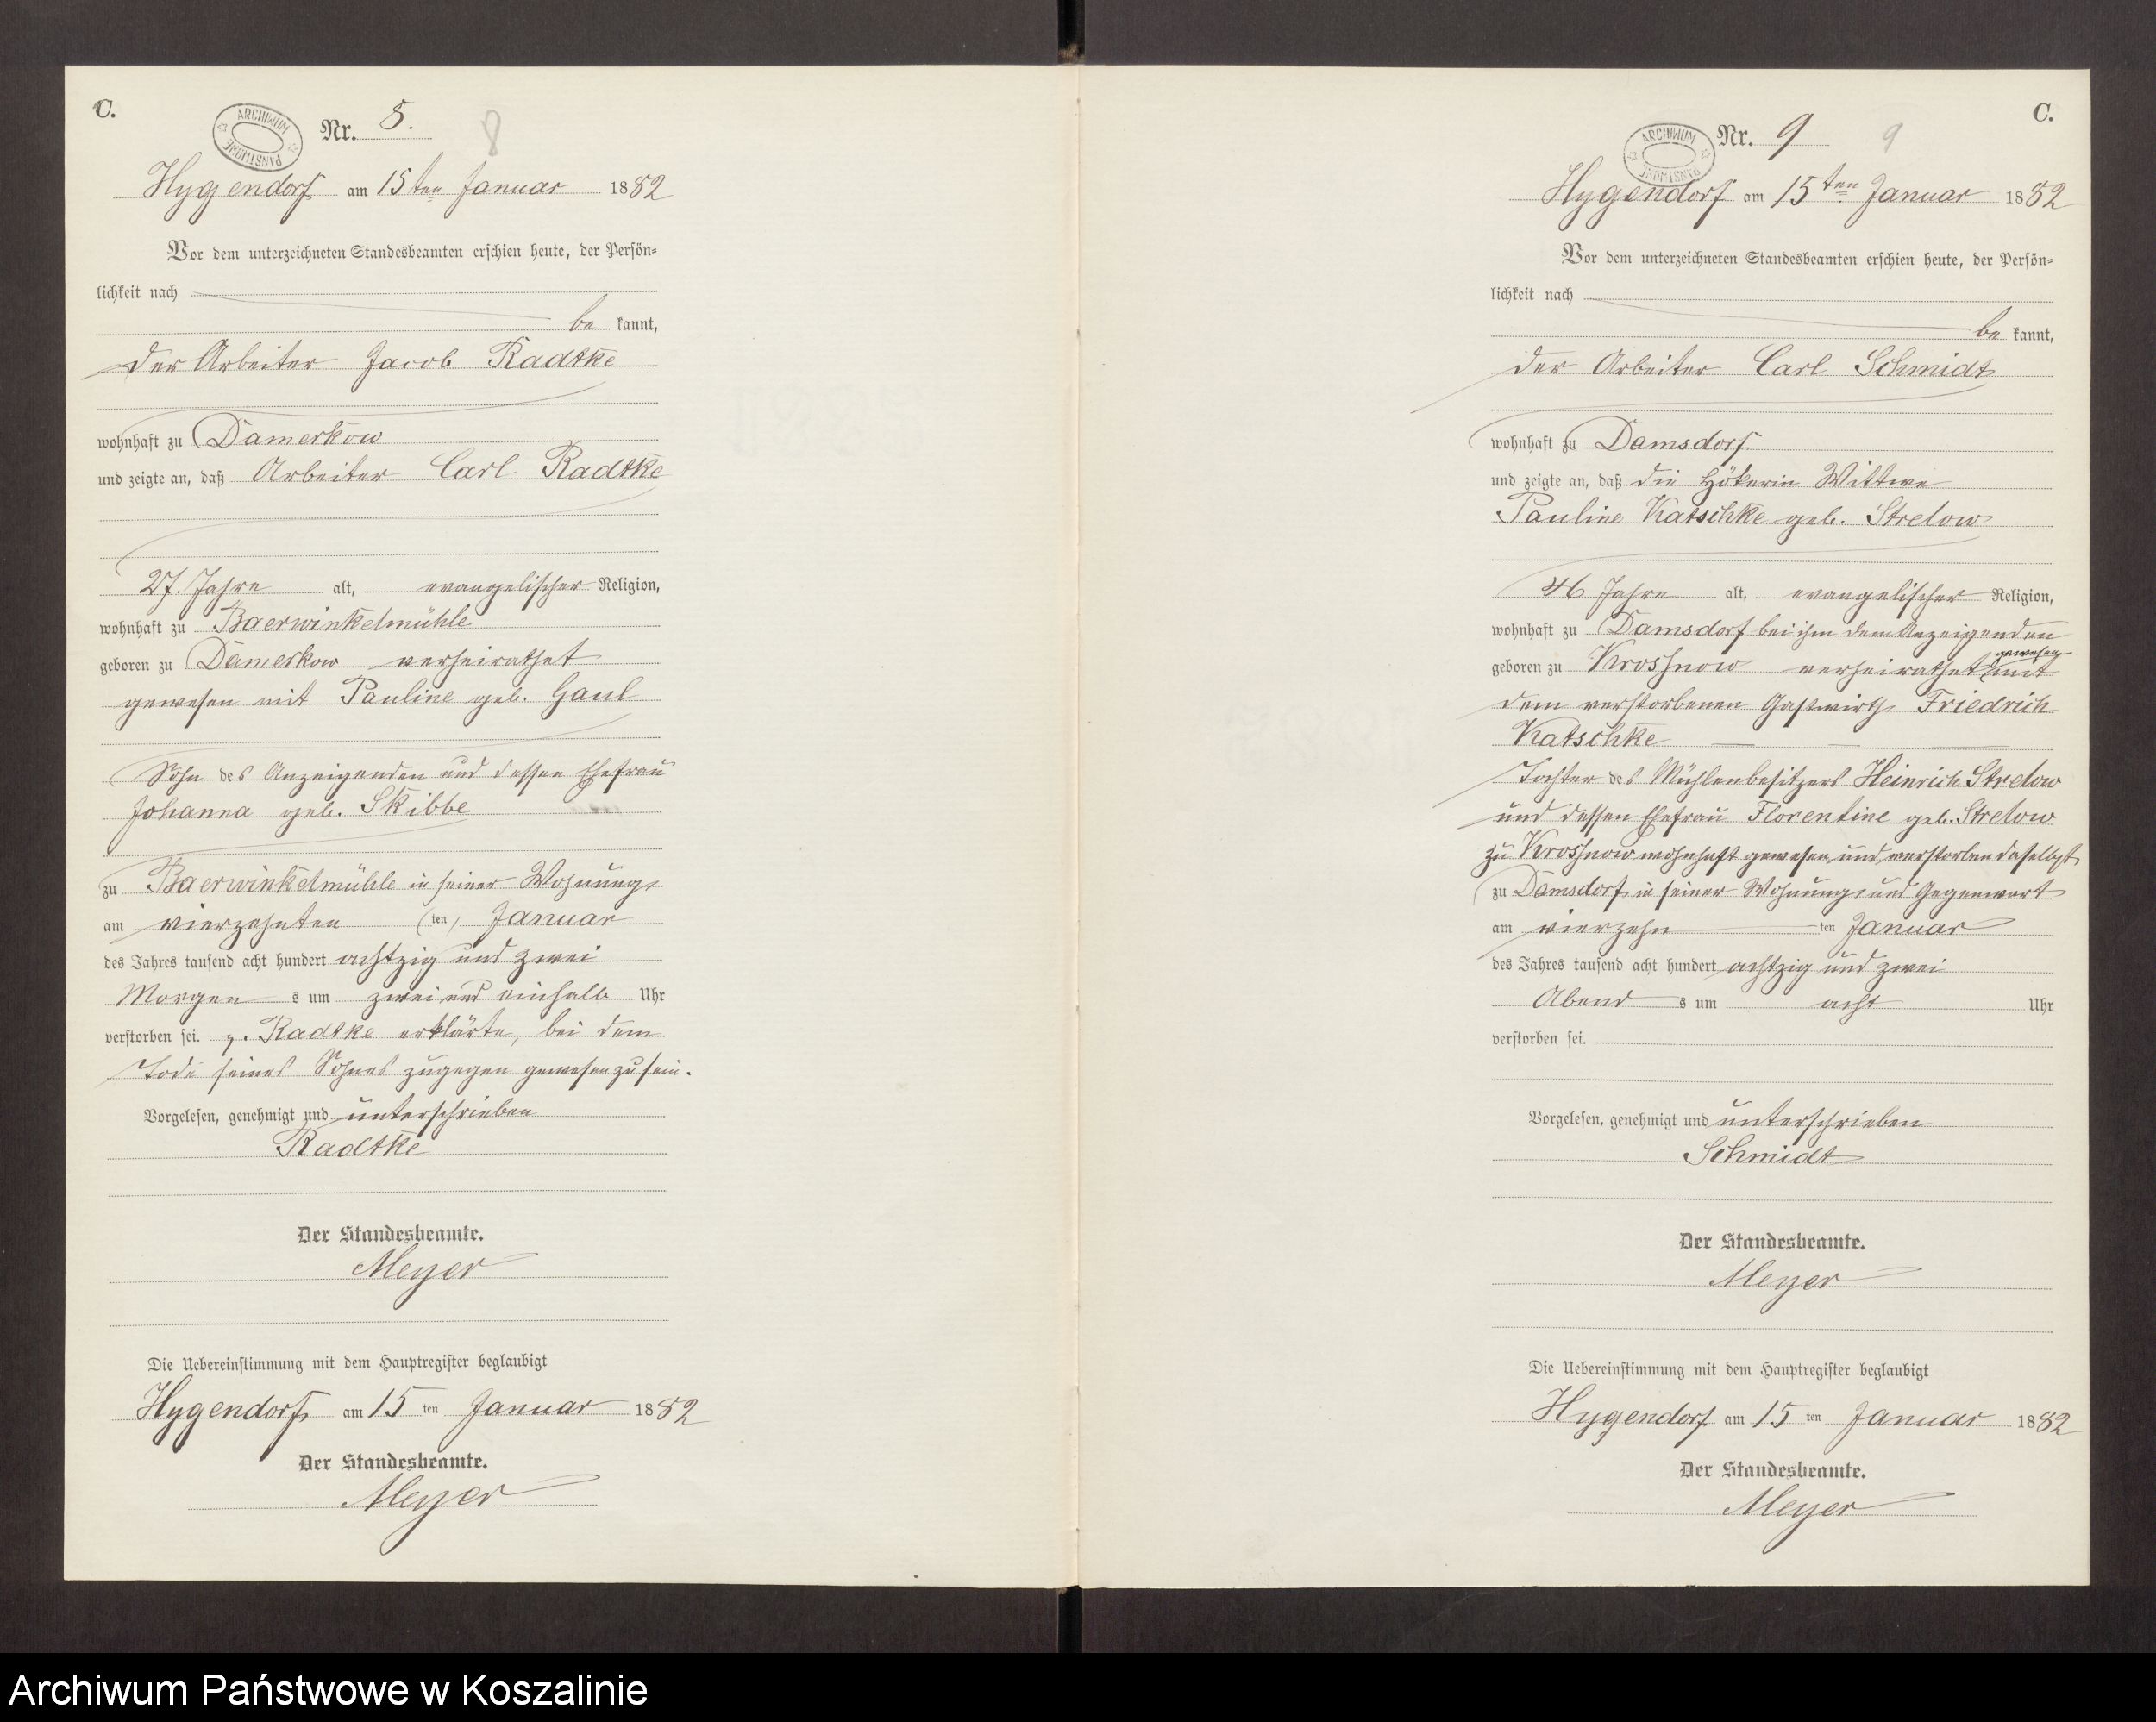 C.
ARCHIWUM PAŃSTWOWE
Nr. 8.
8
Hygendorf am 15ten Januar 1882
Vor dem unterzeichneten Standesbeamten erschien heute, der Persön-
lichkeit nach
be kannt,
der Arbeiter Jacob Radtke
wohnhaft zu Damerkow
und zeigte an, daß Arbeiter Carl Radtke
27. Jahre alt, evangelischer Religion,
wohnhaft zu Baerwinkelmühle
geboren zu Damerkow verheirathet
gewesen mit Pauline geb. Gaul
Sohn des Anzeigenden und dessen Ehefrau
Johanna geb. Skibbe
zu Baerwinkelmühle in seiner Wohnung,
am vierzehnten (ten) Januar
des Jahres tausend acht hundert achtzig und zwei
Morgen s um zwei und einhalb Uhr
verstorben sei. p. Radtke erklärte, bei dem
Tode seines Sohnes zugegen gewesen zu sein.
Vorgelesen, genehmigt und unterschrieben
Radtke
Der Standesbeamte.
Meyer
Die Uebereinstimmung mit dem Hauptregister beglaubigt
Hygendorf, am 15 ten Januar 1882
Der Standesbeamte.
Meyer
C.
ARCHIWUM PAŃSTWOWE
Nr. 9
9
Hygendorf am 15ten Januar 1882
Vor dem unterzeichneten Standesbeamten erschien heute, der Persön-
lichkeit nach
be kannt,
der Arbeiter Carl Schmidt
wohnhaft zu Damsdorf
und zeigte an, daß die Hökerin Wittwe
Pauline Katschke geb. Strelow
46 Jahre alt, evangelischer Religion,
wohnhaft zu Damsdorf bei ihm dem Anzeigenden
geboren zu Krossnow verheirathet gewesen mit
dem verstorbenen Gastwirth Friedrich
Katschke
Tochter des Mühlenbesitzers Heinrich Strelow
und dessen Ehefrau Florentine geb. Strelow
zu Krossnow wohnhaft gewesen und verstorben daselbst
zu Damsdorf in seiner Wohnung und Gegenwart
am vierzehn ten Januar
des Jahres tausend acht hundert achtzig und zwei
Abend s um acht Uhr
verstorben sei.
Vorgelesen, genehmigt und unterschrieben
Schmidt
Der Standesbeamte.
Meyer
Die Uebereinstimmung mit dem Hauptregister beglaubigt
Hygendorf am 15 ten Januar 1882
Der Standesbeamte.
Meyer
Archiwum Państwowe w Koszalinie